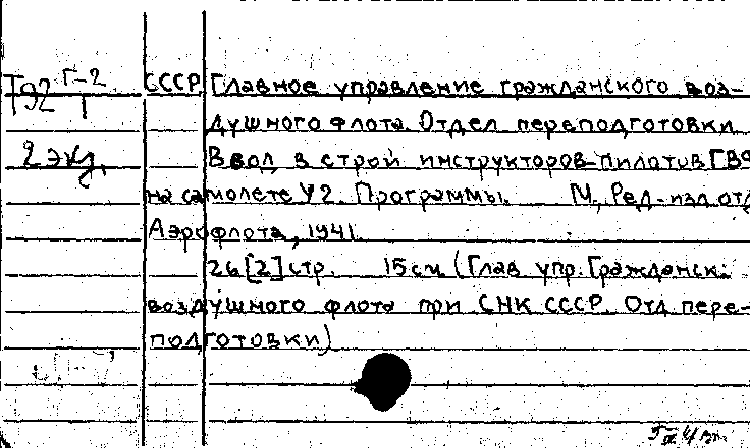 Т92 Г-2
1
СССР Главное управление гражданского воз-
душного флота. Отдел переподготовки.
2 экз.
Ввод в строй инструкторов-пилотов ГВФ
на самолете У2. Программы. М., Ред-изд. отд
Аэрофлота, 1941.
26 [2] стр. 15 см (Глав упр. Гражданск.
воздушного флота при СНК СССР. Отд. пере-
подготовки)